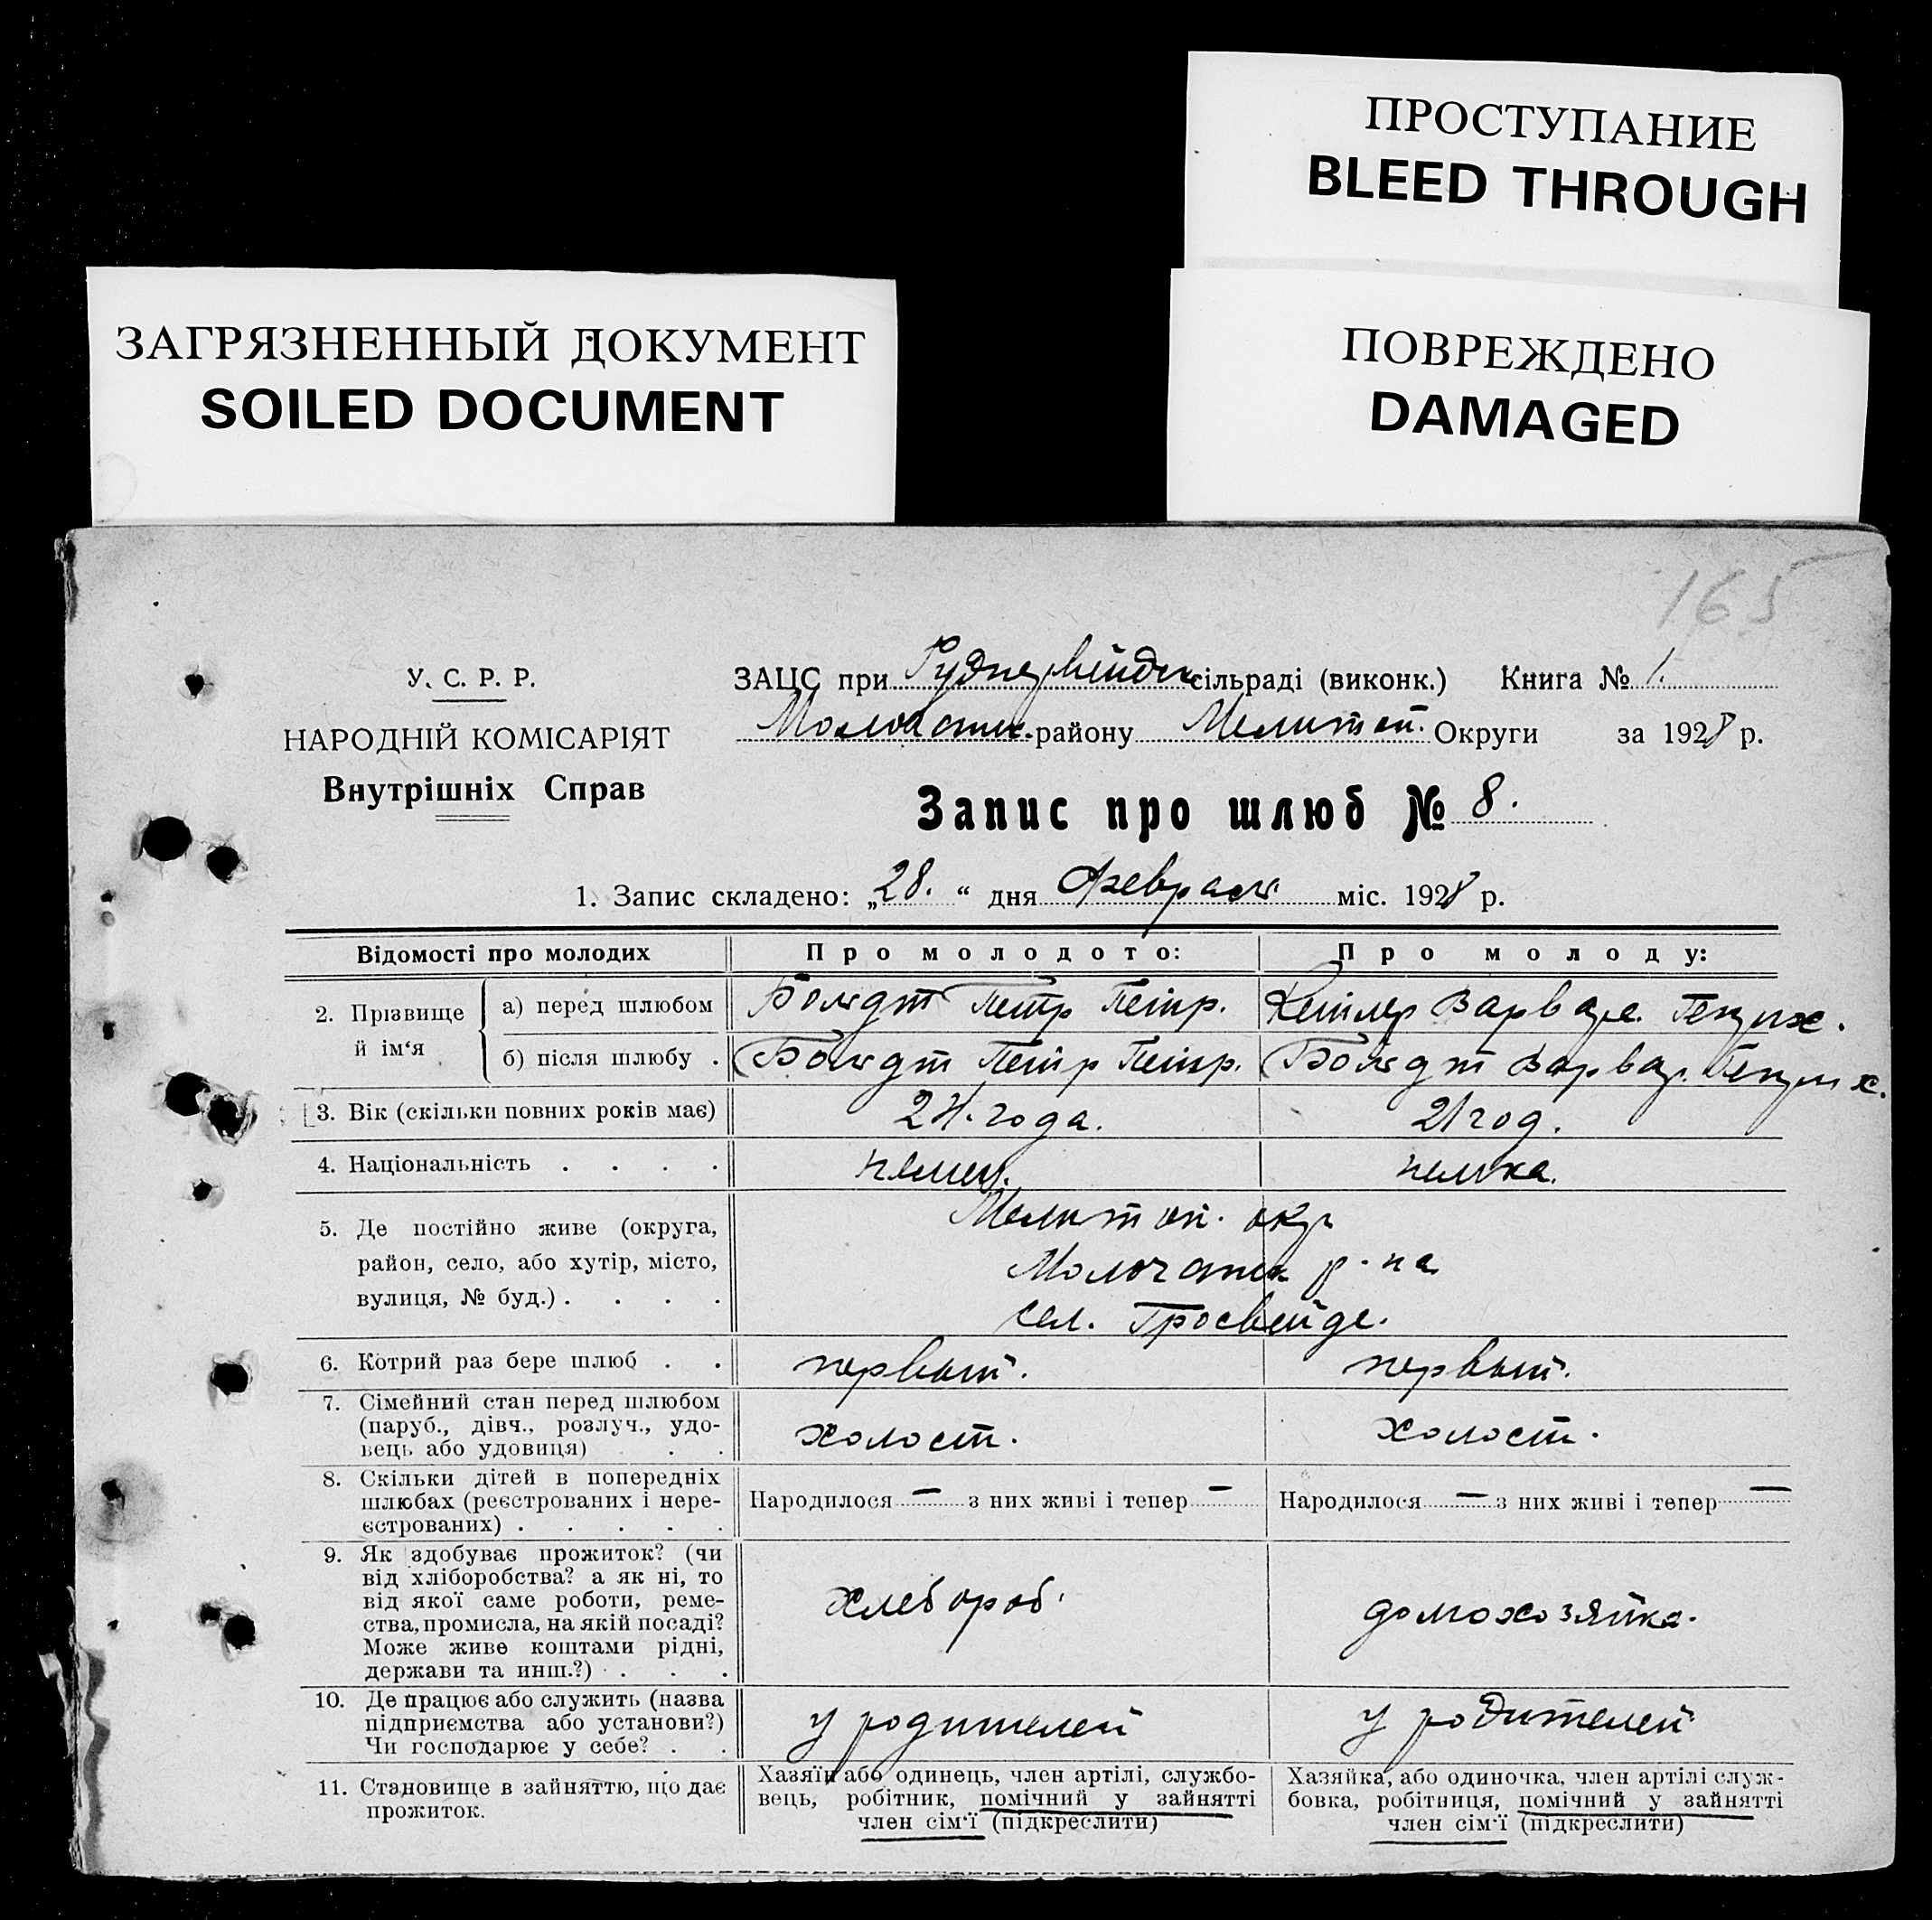 ПРОСТУПАНИЕ
BLEED THROUGH
ЗАГРЯЗНЕННЫЙ ДОКУМЕНТ
SOILED DOCUMENT
ПОВРЕЖДЕНО
DAMAGED
165
У. С. Р. Р.
НАРОДНІЙ КОМІСАРІЯТ
Внутрішніх Справ
ЗАЦС при сільраді (виконк.) Книга № 1.
району Мелитоп. Округи за 1928 р.
Запис про шлюб № 8.
1. Запис складено: „28.“ дня Февраля міс. 1928 р.
Відомості про молодих
Про молодого:
Про молоду:
2. Прізвище й ім‘я
а) перед шлюбом
Петр Петр.
Варвара Генрих.
б) після шлюбу .
Петр Петр.
Варвар. Генрих.
3. Вік (скільки повних років має)
24. года.
21 год.
4. Національність . . . .
немец.
немка.
5. Де постійно живе (округа,
район, село, або хутір, місто,
вулиця, № буд.) . . . .
Мелитоп. окр
Молочанск р-на
сел. Гросвейде.
6. Котрий раз бере шлюб . .
первый.
первый.
7. Сімейний стан перед шлюбом
(паруб., дівч., розлуч., удо-
вець або удовиця) . .
холост.
холост.
8. Скільки дітей в попередніх
шлюбах (реєстрованих і нере-
єстрованих) . . . . .
Народилося — з них живі і тепер —
Народилося — з них живі і тепер —
9. Як здобуває прожиток? (чи
від хліборобства? а як ні, то
від якої саме роботи, реме-
ства, промисла, на якій посаді?
Може живе коштами рідні,
держави та инш.?) . . .
хлебороб.
домохозяйка.
10. Де працює або служить (назва
підприємства або установи?)
Чи господарює у себе? . .
у родителей
у родителей
11. Становище в зайняттю, що дає
прожиток.
Хазяїн або одинець, член артілі, службо-
вець, робітник, помічний у зайнятті
член сім‘ї (підкреслити)
Хазяйка, або одиночка, член артілі служ-
бовка, робітниця, помічний у зайнятті
член сім‘ї (підкреслити)